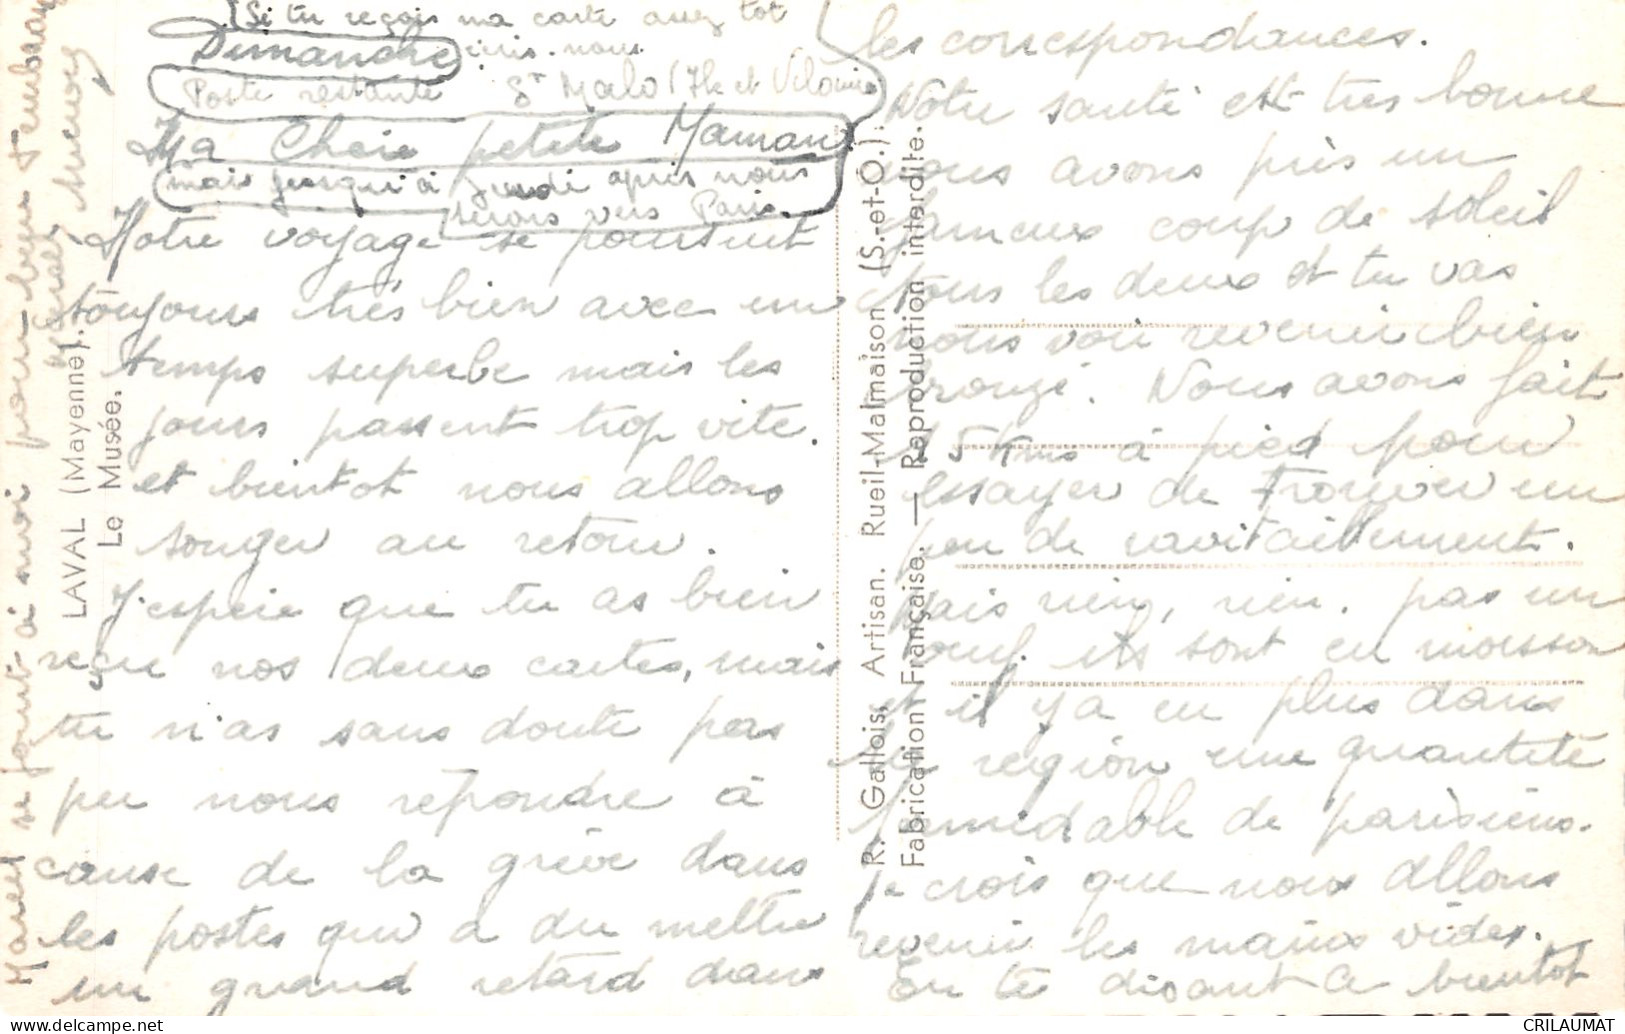 (Si tu reçois ma carte assez tot
Dimanche écris-nous
Poste restante St Malo (Ile et Vilaine
Ma Chère petite Maman
mais jusqu'à jeudi après nous
serons vers Paris.
Notre voyage se poursuit
toujours très bien avec un
temps superbe mais les
jours passent trop vite.
et bientot nous allons
songer au retour.
J'espère que tu as bien
reçu nos deux cartes, mais
tu n'as sans doute pas
pu nous répondre à
cause de la grève dans
les postes qui a du mettre
un grand retard dans
les correspondances.
Notre santé est très bonne
nous avons pris un
fameux coup de soleil
tous les deux et tu vas
nous voir revenir bien
bronzé. Nous avons fait
15 Kms à pied pour
essayer de trouver un
peu de ravitaillement.
Mais rien, rien. pas un
oeuf. ils sont en moisson
et il y a en plus dans
la région une quantité
formidable de parisiens.
Je crois que nous allons
revenir les mains vides.
En te disant a bientot
Marcel se joint à moi pour
LAVAL (Mayenne).
Le Musée.
R. Gallois, Artisan. Rueil-Malmaison (S.-et-O.).
Fabrication Française. — Reproduction interdite.
CRILAUMAT